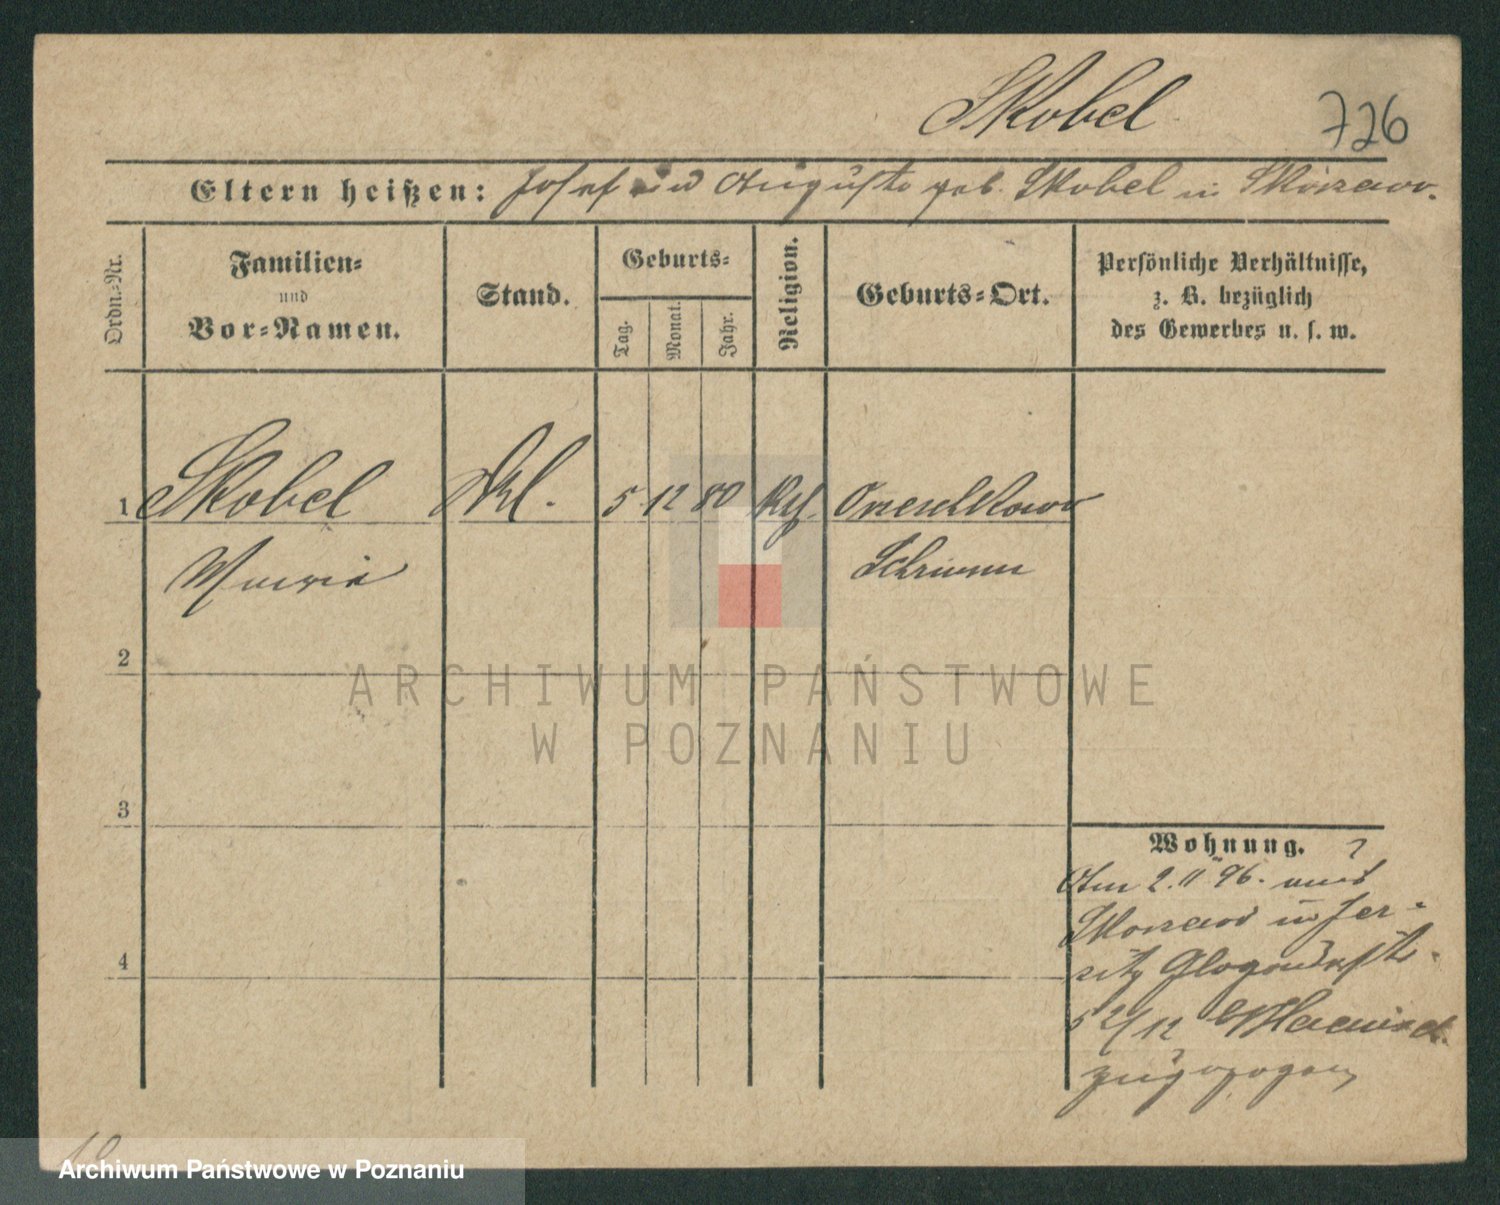 Skobel
726
Eltern heißen: Josef und Auguste geb. Skobel in Skórzewo.
Ordn.-Nr.
Familien-
und
Vor-Namen.
Stand.
Geburts-
Tag.
Monat.
Jahr.
Religion.
Geburts-Ort.
Persönliche Verhältnisse,
z. B. bezüglich
des Gewerbes u. s. w.
1 Skobel 5 12 80 Kth.
Maria Schrimm
2
3
4
Wohnung.
Am 2. 11 96. aus
in Jer-
sitz Glogauerstr.
5 2/12
zugezogen
10
ARCHIWUM PAŃSTWOWE
W POZNANIU
Archiwum Państwowe w Poznaniu